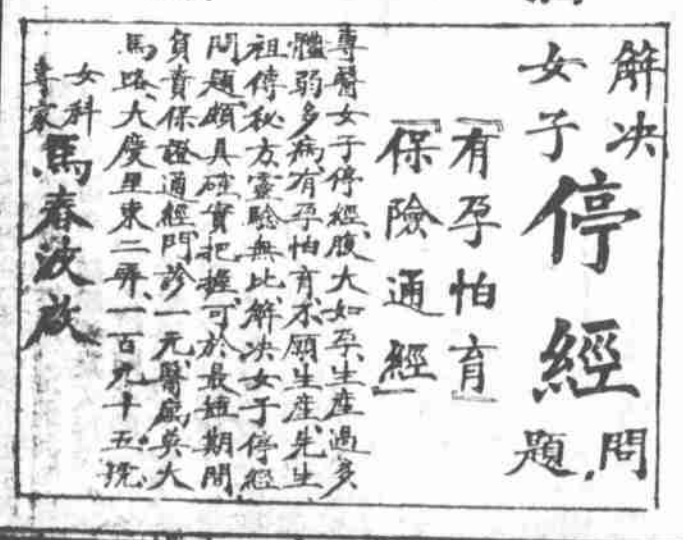 解决
女子
停經
問
題
『有孕怕育』
『保險通經』
專醫女子停經、腹大如孕、生產過多、
體弱多病、有孕怕育、不願生產、先生
祖傳秘方、靈驗無比、解决女子停經
問題、頗具確實把握、可於最短期間
負責保證通經、門診一元、醫廬英大
馬路、大慶里東二弄、一百九十五號、
女科
專家
馬春波啟